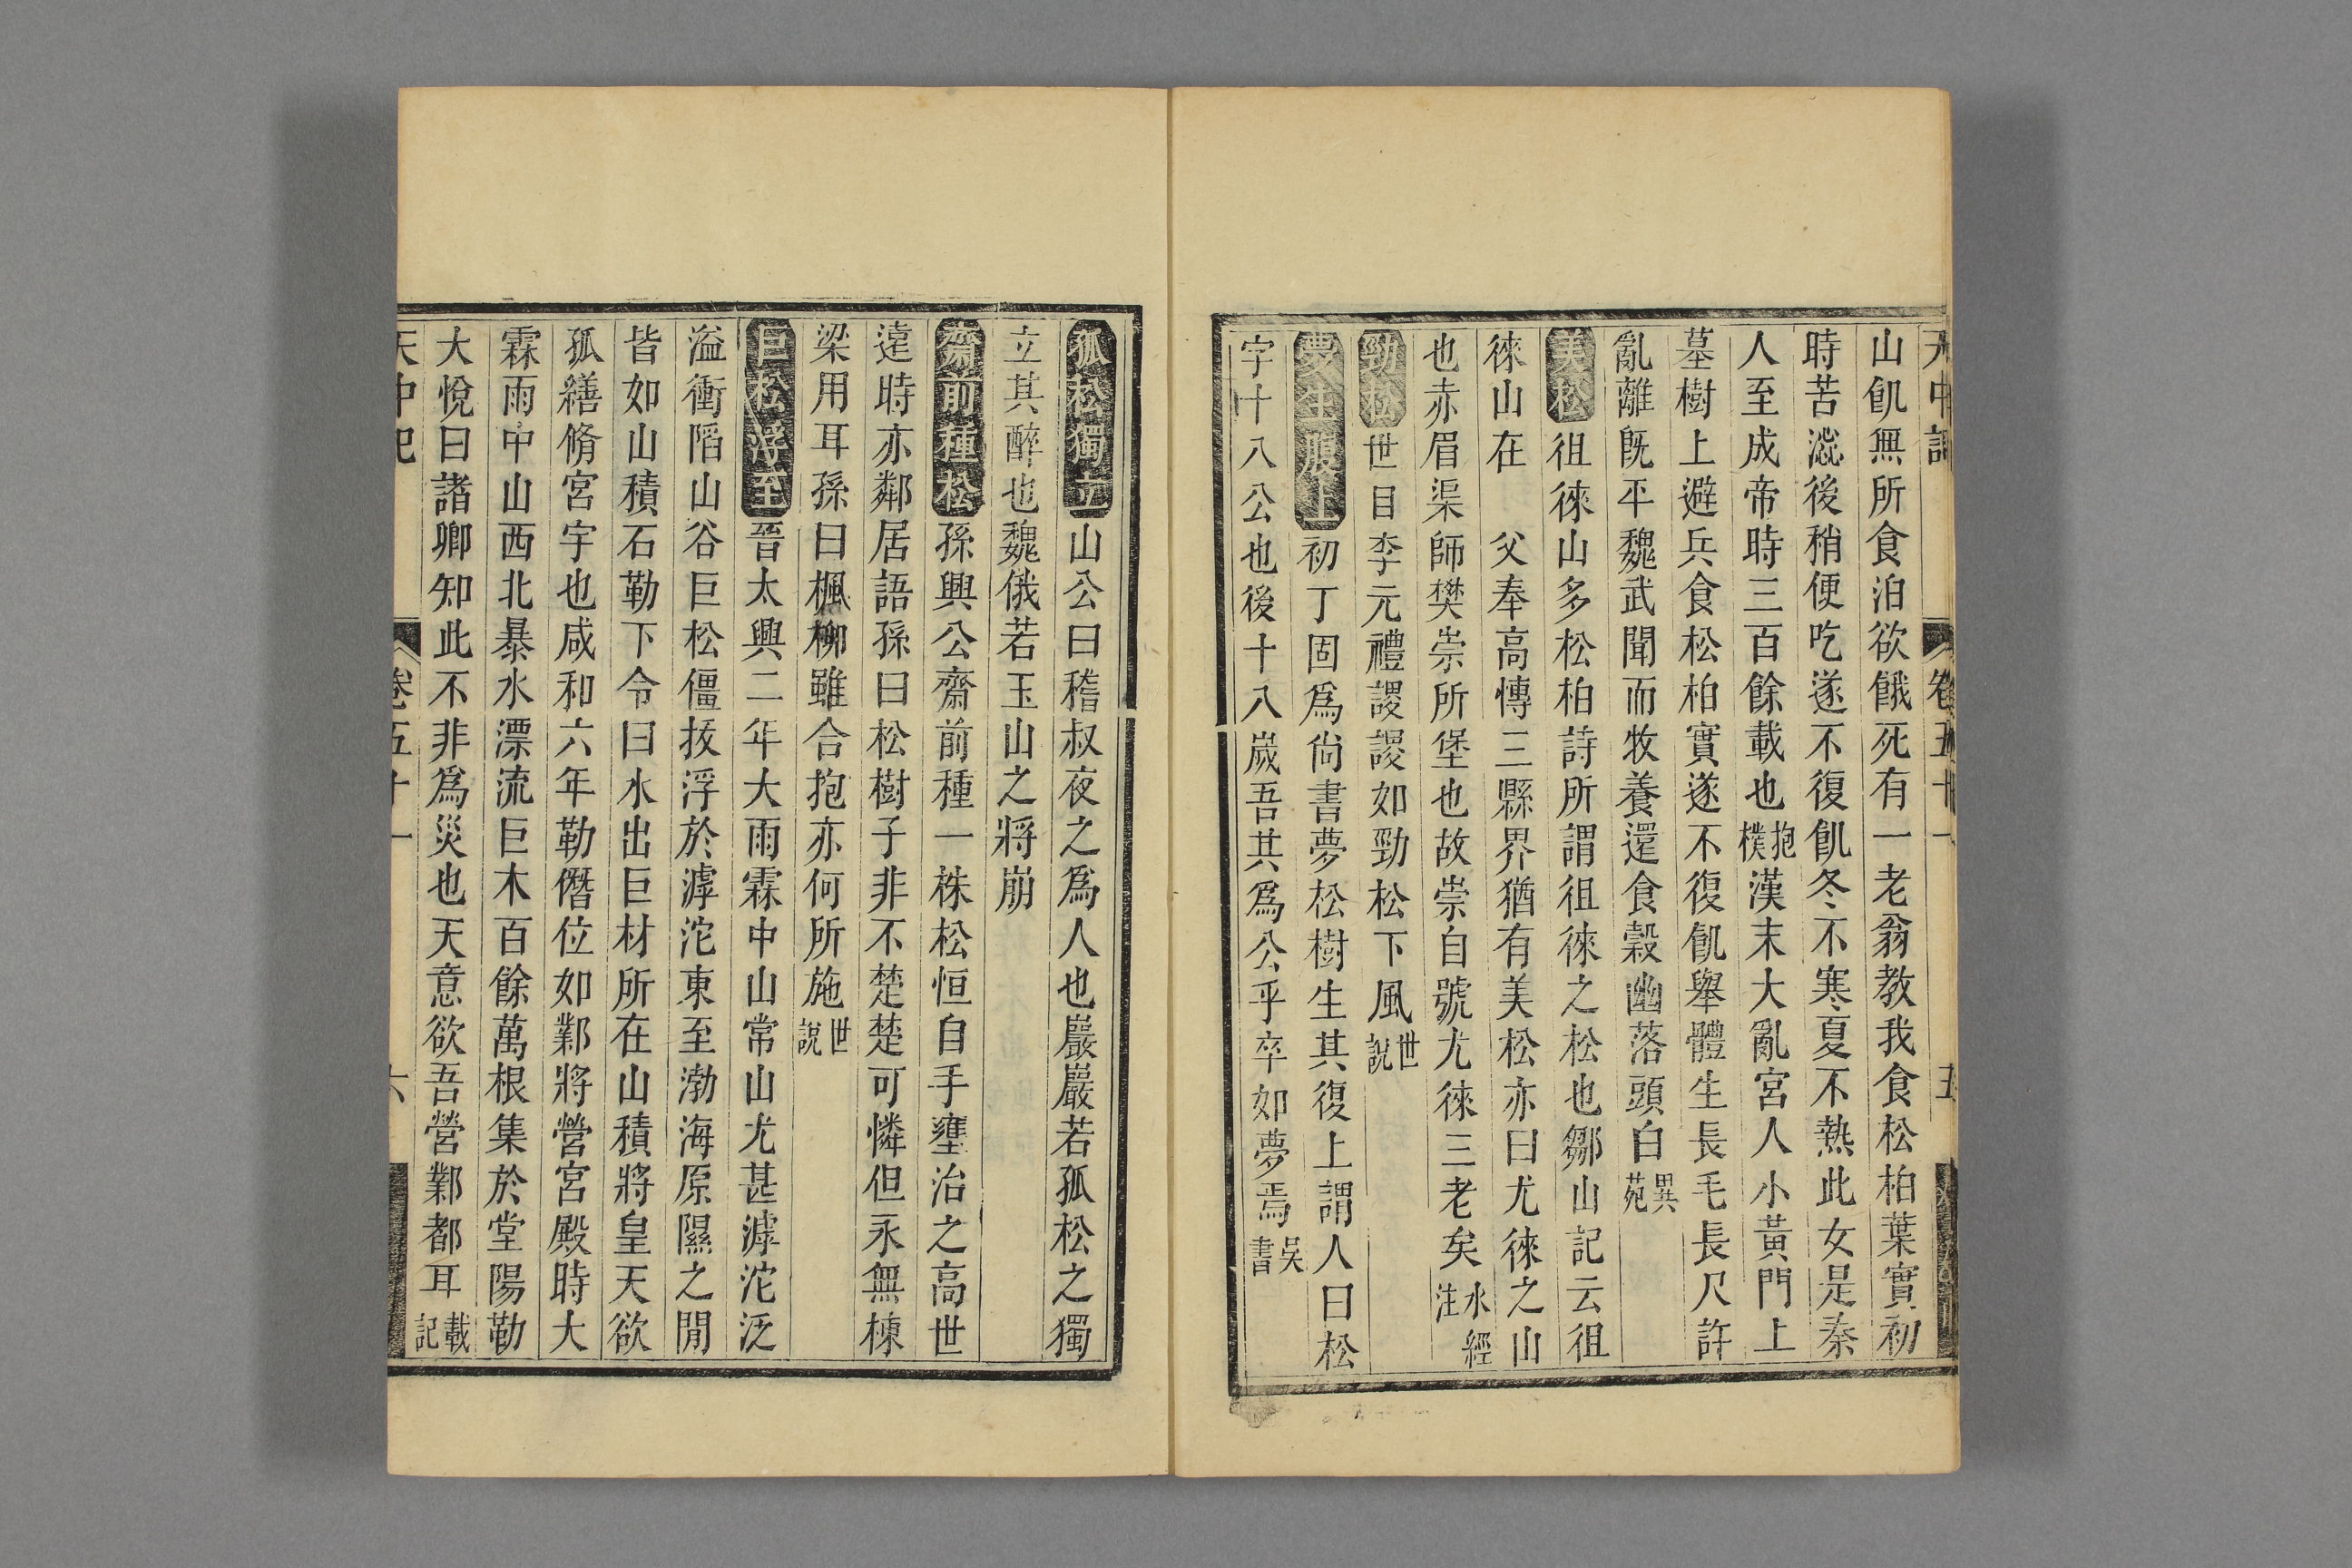 天中記 卷五十一 五
山飢無所食泊欲餓死有一老翁教我食松柏葉實初
時苦澁後稍便吃遂不復飢冬不寒夏不熱此女是秦
人至成帝時三百餘載也抱樸漢末大亂宮人小黃門上
墓樹上避兵食松柏實遂不復飢舉體生長毛長尺許
亂離旣平魏武聞而牧養還食穀幽落頭白異苑
美松徂徠山多松柏詩所謂徂徠之松也鄒山記云徂
徠山在 父奉高愽三縣界猶有美松亦曰尤徠之山
也赤眉渠師樊崇所堡也故崇自號尤徠三老矣水經注
勁松世目李元禮謖謖如勁松下風世說
夢生腹上初丁固爲尙書夢松樹生其復上謂人曰松
字十八公也後十八歲吾其爲公乎卒如夢焉吳書
孤松獨立山公曰稽叔夜之爲人也巖巖若孤松之獨
立其醉也魏俄若玉山之將崩
齋前種松孫興公齋前種一株松恒自手壅治之高世
遠時亦鄰居語孫曰松樹子非不楚楚可憐但永無棟
梁用耳孫曰楓柳雖合抱亦何所施世說
巨松浮至晉太興二年大雨霖中山常山尤甚滹沱泛
溢衝陷山谷巨松僵拔浮於滹沱東至渤海原隰之閒
皆如山積石勒下令曰水出巨材所在山積將皇天欲
孤繕脩宮宇也咸和六年勒僭位如鄴將營宮殿時大
霖雨中山西北暴水漂流巨木百餘萬根集於堂陽勒
大悅曰諸卿知此不非爲災也天意欲吾營鄴都耳載記
天中記 卷五十一 六